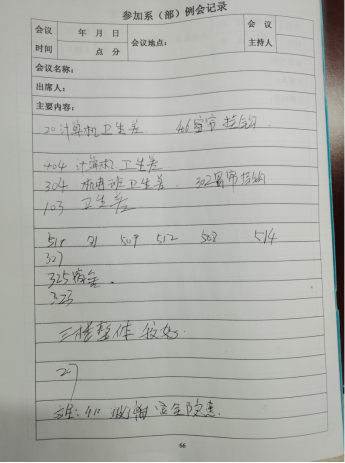 参加系（部）例会记录
会议时间 年 月 日 点 分 会议地点： 会议主持人
会议名称：
出席人：
主要内容：
20计算机卫生差 406窗帘挂钩
404 计算机卫生差
304 机电班卫生差 302窗帘挂钩
103 卫生差
511 21 509 512 508 514
307
325宿舍
323
三楼整体较好
207
410 安全隐患
66